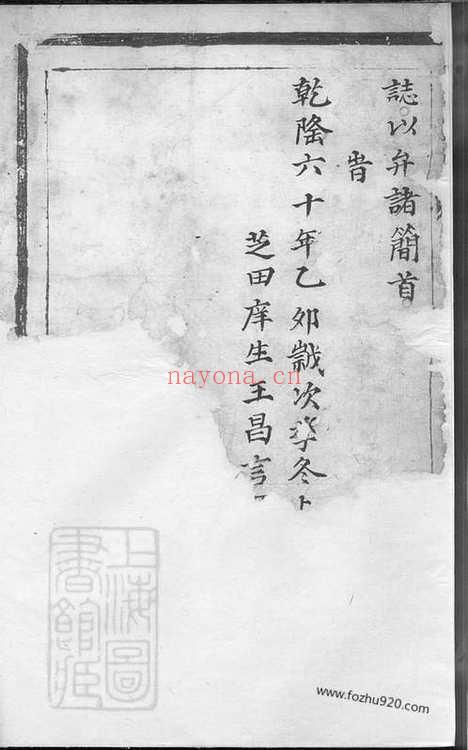 誌以弁諸簡首
旹
乾隆六十年乙夘歲次季冬
芝田庠生王昌言
nayona.cn
上海圖書館藏
www.fozhu920.com